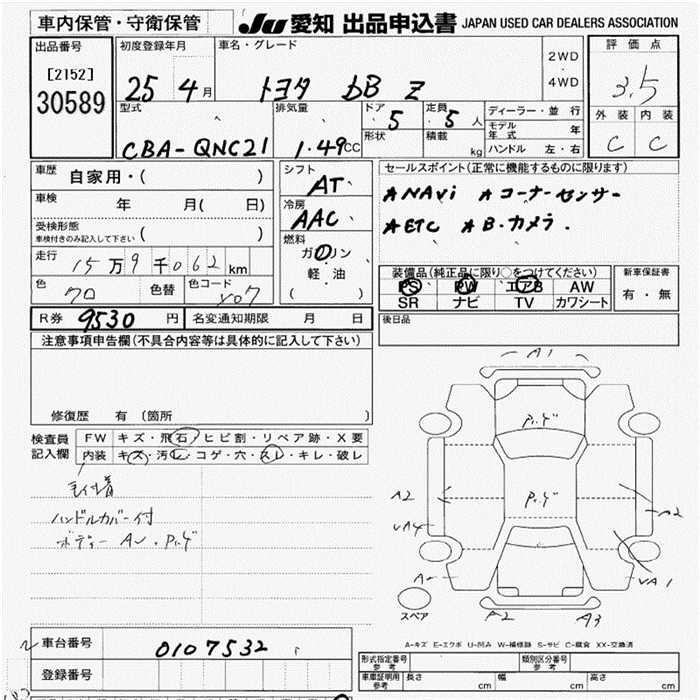 車内保管・守衛保管
JU 愛知 出品申込書 JAPAN USED CAR DEALERS ASSOCIATION
出品番号
[2152]
30589
初度登録年月
25 4月
車名・グレード
トヨタ bB Z
2WD
・
4WD
評価点
3.5
外装 内装
C C
型式
CBA-QNC21
排気量
1.49CC
ドア 5
形状
定員 5人
積載 kg
ディーラー・並行
モデル年式 年
ハンドル 左・右
車歴 自家用・( )
車検 年 月( 日)
受検形態
車検付きのみ記入して下さい ( )
走行 15万9千062km
色 クロ 色替 色コード X07
シフト AT
冷房 AAC
燃料
ガソリン
軽油
( )
セールスポイント(正常に機能するものに限ります)
★NAVi ★コーナーセンサー
★ETC ★B・カメラ.
装備品(純正品に限り○をつけてください)
PS PW エアB AW
SR ナビ TV カワシート
新車保証書
有・無
R券 9530円 名変通知期限 月 日
後日品
注意事項申告欄(不具合内容等は具体的に記入して下さい)
修復歴 有(箇所 )
検査員記入欄
FW キズ・飛石・ヒビ割・リペア跡・X要
内装 キズ・汚レ・コゲ・穴・スレ・キレ・破レ
毛付着
ハンドルカバー付
ボディー AU・Pレゲ
A1
Pレゲ
Pレゲ
A2
A2
A
VA1
A2
A3
スペア
A-キズ E-エクボ U-凹み W-補修跡 S-サビ C-腐食 XX-交換済
車台番号 0107532
登録番号
形式指定番号 参考
類別区分番号 参考
車庫証明用 参考 長さ cm 幅 cm 高さ cm